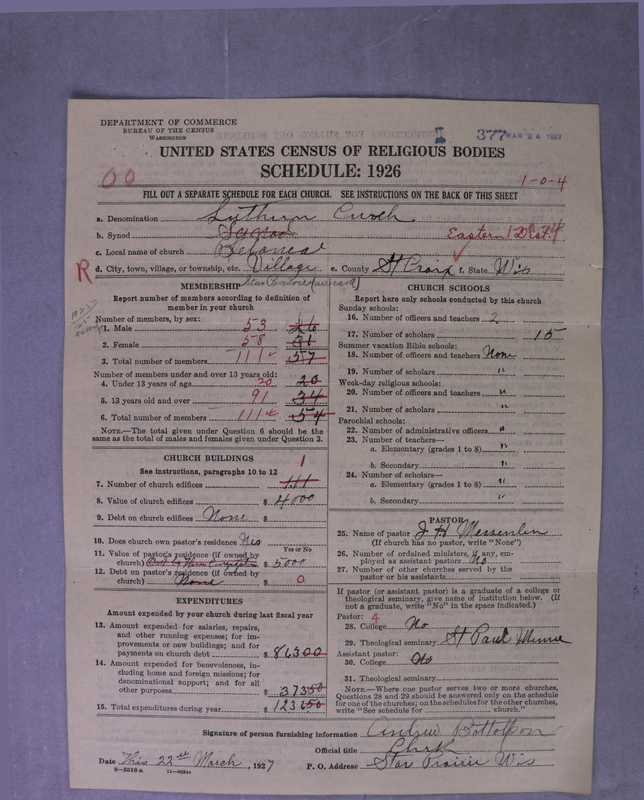 DEPARTMENT OF COMMERCE
BUREAU OF THE CENSUS
WASHINGTON
377 MAR 24 1927
UNITED STATES CENSUS OF RELIGIOUS BODIES
SCHEDULE: 1926
00
1-0-4
FILL OUT A SEPARATE SCHEDULE FOR EACH CHURCH. SEE INSTRUCTIONS ON THE BACK OF THIS SHEET
a. Denomination Luthurn Curch
b. Synod Eastern Dist.
c. Local name of church
R d. City, town, village, or township, etc. Village e. County St Croix f. State Wis
Star Prairie
MEMBERSHIP
Report number of members according to definition of member in your church
Number of members, by sex:
1. Male 53 26
2. Female 58 31
3. Total number of members 111 57
Number of members under and over 13 years old:
4. Under 13 years of age 20 20
5. 13 years old and over 91 34
6. Total number of members 111 54
NOTE.—The total given under Question 6 should be the same as the total of males and females given under Question 3.
CHURCH BUILDINGS
See instructions, paragraphs 10 to 12
7. Number of church edifices 1
8. Value of church edifices $ 4000
9. Debt on church edifices None $
10. Does church own pastor's residence Yes
Yes or No
11. Value of pastor's residence (if owned by church) $ 5000
12. Debt on pastor's residence (if owned by church) None $ 0
EXPENDITURES
Amount expended by your church during last fiscal year
13. Amount expended for salaries, repairs, and other running expenses; for improvements or new buildings; and for payments on church debt $ 86300
14. Amount expended for benevolences, including home and foreign missions; for denominational support; and for all other purposes $ 37350
15. Total expenditures during year $ 123650
CHURCH SCHOOLS
Report here only schools conducted by this church
Sunday schools:
16. Number of officers and teachers 2
17. Number of scholars 15
Summer vacation Bible schools:
18. Number of officers and teachers None
19. Number of scholars "
Week-day religious schools:
20. Number of officers and teachers "
21. Number of scholars "
Parochial schools:
22. Number of administrative officers "
23. Number of teachers—
a. Elementary (grades 1 to 8) "
b. Secondary "
24. Number of scholars—
a. Elementary (grades 1 to 8) "
b. Secondary "
PASTOR
25. Name of pastor J H
(If church has no pastor, write "None")
26. Number of ordained ministers, if any, employed as assistant pastors No
27. Number of other churches served by the pastor or his assistants
If pastor (or assistant pastor) is a graduate of a college or theological seminary, give name of institution below. (If not a graduate, write "No" in the space indicated.)
Pastor: 4
28. College No
29. Theological seminary St Paul Minne
Assistant pastor:
30. College No
31. Theological seminary
NOTE.—Where one pastor serves two or more churches, Questions 28 and 29 should be answered only on the schedule for one of the churches; on the schedules for the other churches, write "See schedule for church."
Signature of person furnishing information Andrew
Official title Clerk
Date This 22nd March, 1927 P. O. Address Star Prairie Wis
8-5616a 11-9084